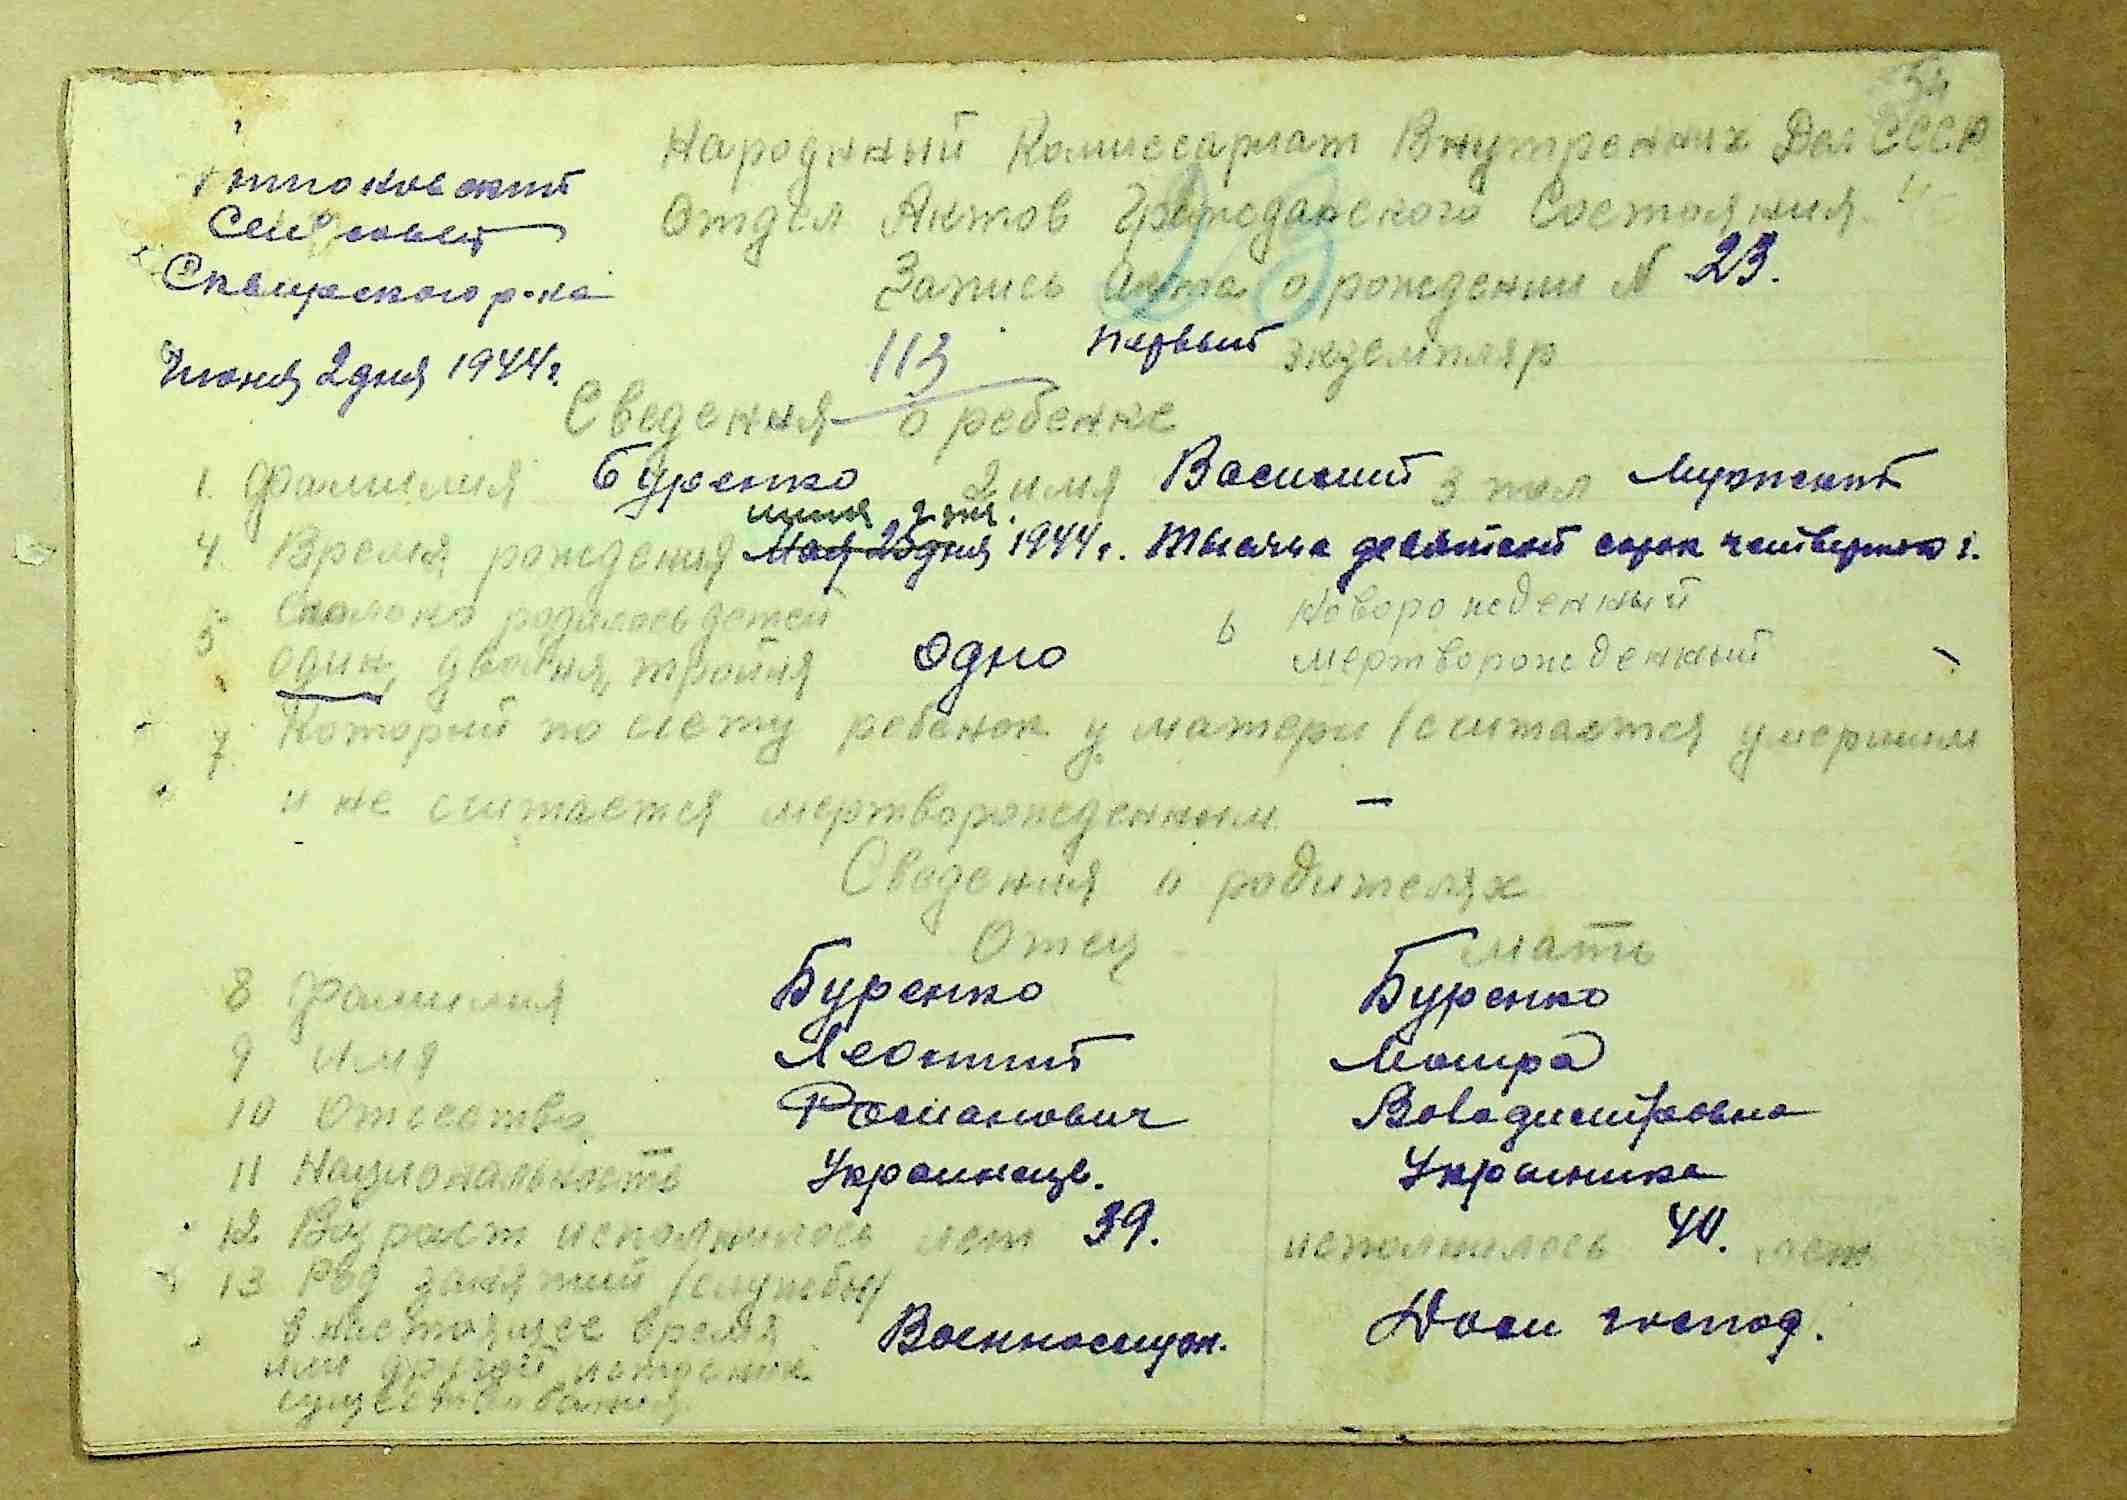 Народный Комиссариат Внутренних Дел СССР
Отдел Актов Гражданского Состояния
Сельсовет
Сквирского р-на
Запись Акта о рождении № 23.
Июня 2 дня 1944 г.
113
первый экземпляр
Сведения о ребенке
1. Фамилия Буренко 2 имя Василий 3 пол Мужской
4. Время рождения Мая 25 дня 1944 г. Тысяча девятсот сорок четвертого г.
5 Сколько родилось детей
один, двойня, тройня одно
6 Новорожденный
мертворожденный
7 Который по счету ребенок у матери /считается умершим
и не считается мертворожденным —
Сведения о родителях
Отец мать
8 Фамилия Буренко Буренко
9 Имя Леонтий
10 Отчество Романович
11 Национальность Украинець. Украинка
12 Возраст исполнилось лет 39. исполнилось 40. лет
13 Род занятий /службы/
в настоящее время
или другой источник
существования
Военнослуж. Дом господ.